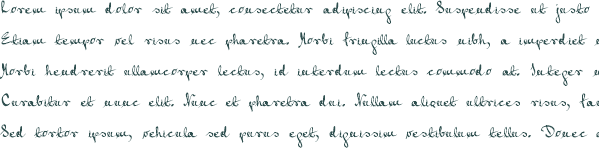 Lorem ipsum dolor sit amet, consectetur adipiscing elit. Suspendisse at justo
Etiam tempor vel risus nec pharetra. Morbi fringilla luctus nibh, a imperdiet
Morbi hendrerit ullamcorper lectus, id interdum lectus commodo at. Integer
Curabitur et nunc elit. Nunc et pharetra dui. Nullam aliquet ultrices risus,
Sed tortor ipsum, vehicula sed purus eget, dignissim vestibulum tellus. Donec